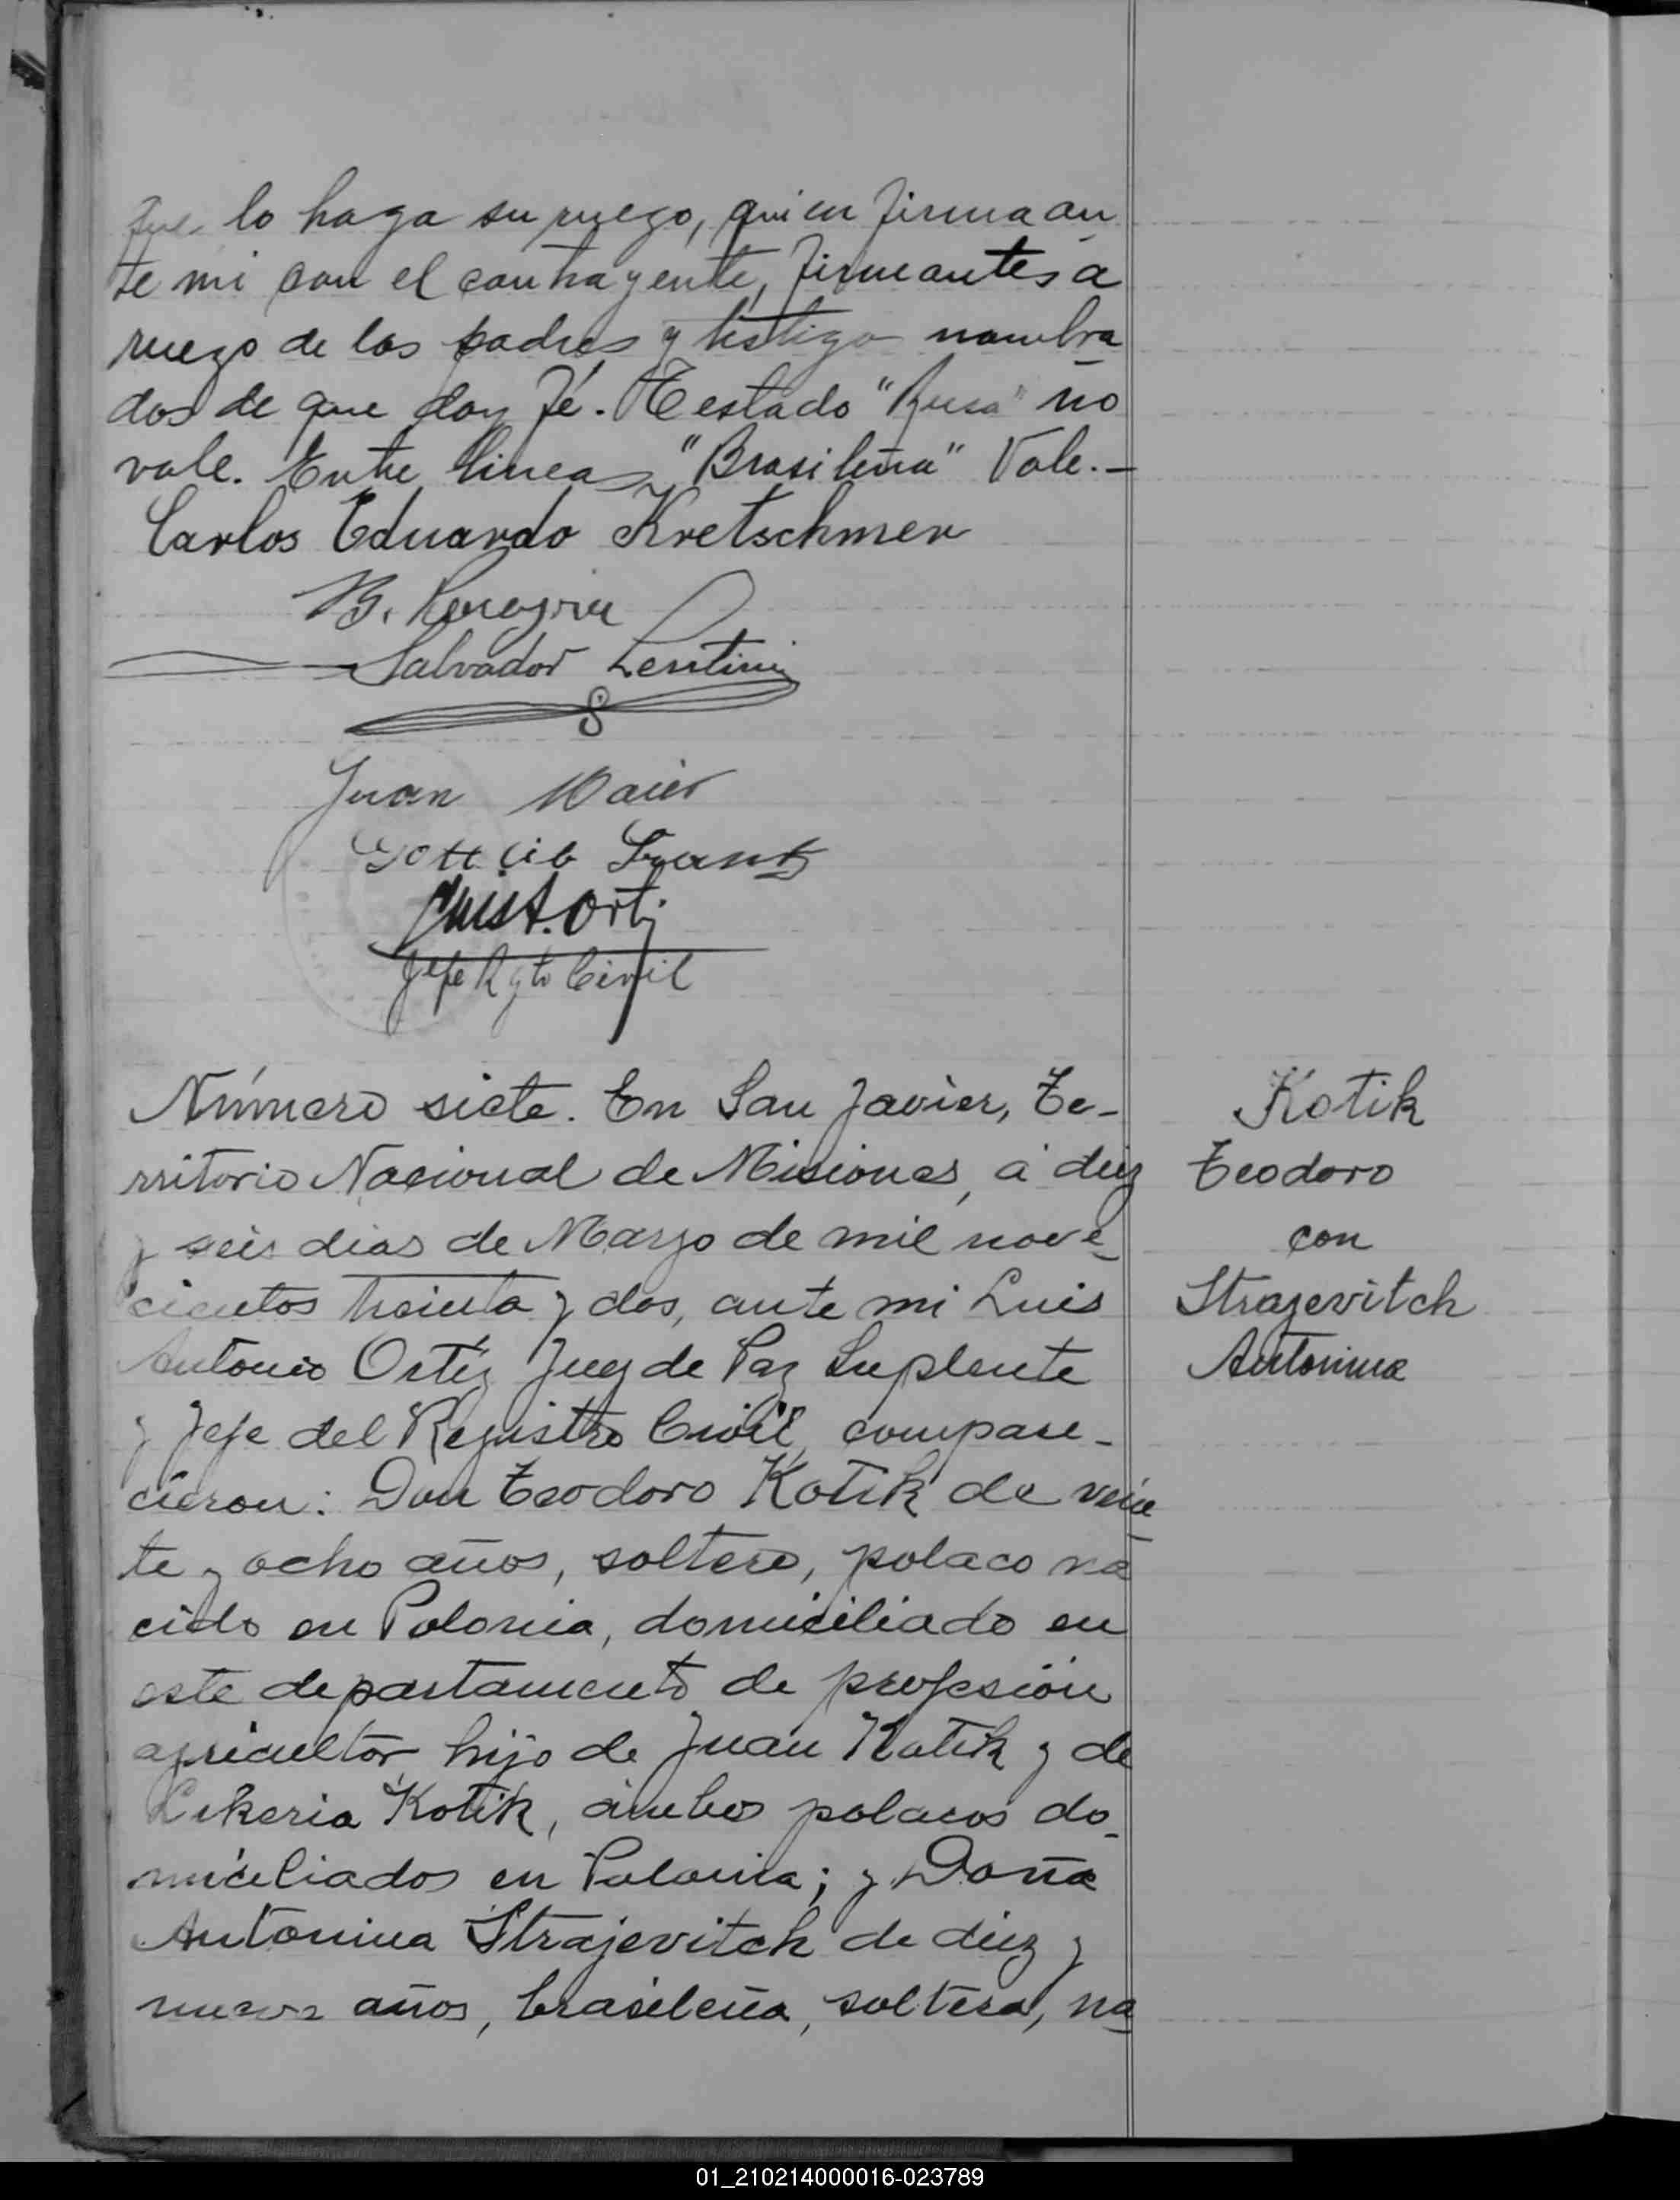 que lo haga su ruego, quien firma an
te mi con el contrayente, firmantes a
ruego de los padres y testigo nombra
dos de que doy fé. Testado "Rusa" no
vale. Entre lineas, "Brasileña" Vale.-
Carlos Eduardo Kretschmer
B.
Salvador Lentini
Juan Maier
Gottlib
Luis A. Ortiz
Jefe Rgto Civil
Número siete. En San Javier, Te-
rritorio Nacional de Misiones, a diez
y seis dias de Marzo de mil nove-
cientos treinta y dos, ante mi Luis
Antonio Ortiz Juez de Paz Suplente
y Jefe del Registro Civil, compare-
cieron: Don Teodoro Kotik de vein-
te y ocho años, soltero, polaco na
cido en Polonia, domiciliado en
este departamento de profesión
agricultor hijo de Juan Kotik y de
Likeria Kotik, ambos polacos do-
miciliados en Polonia; y Doña
Antonina Strajevitch de diez y
nueve años, brasileña, soltera, na
Kotik
Teodoro
con
Strajevitch
Antonina
01_210214000016-023789